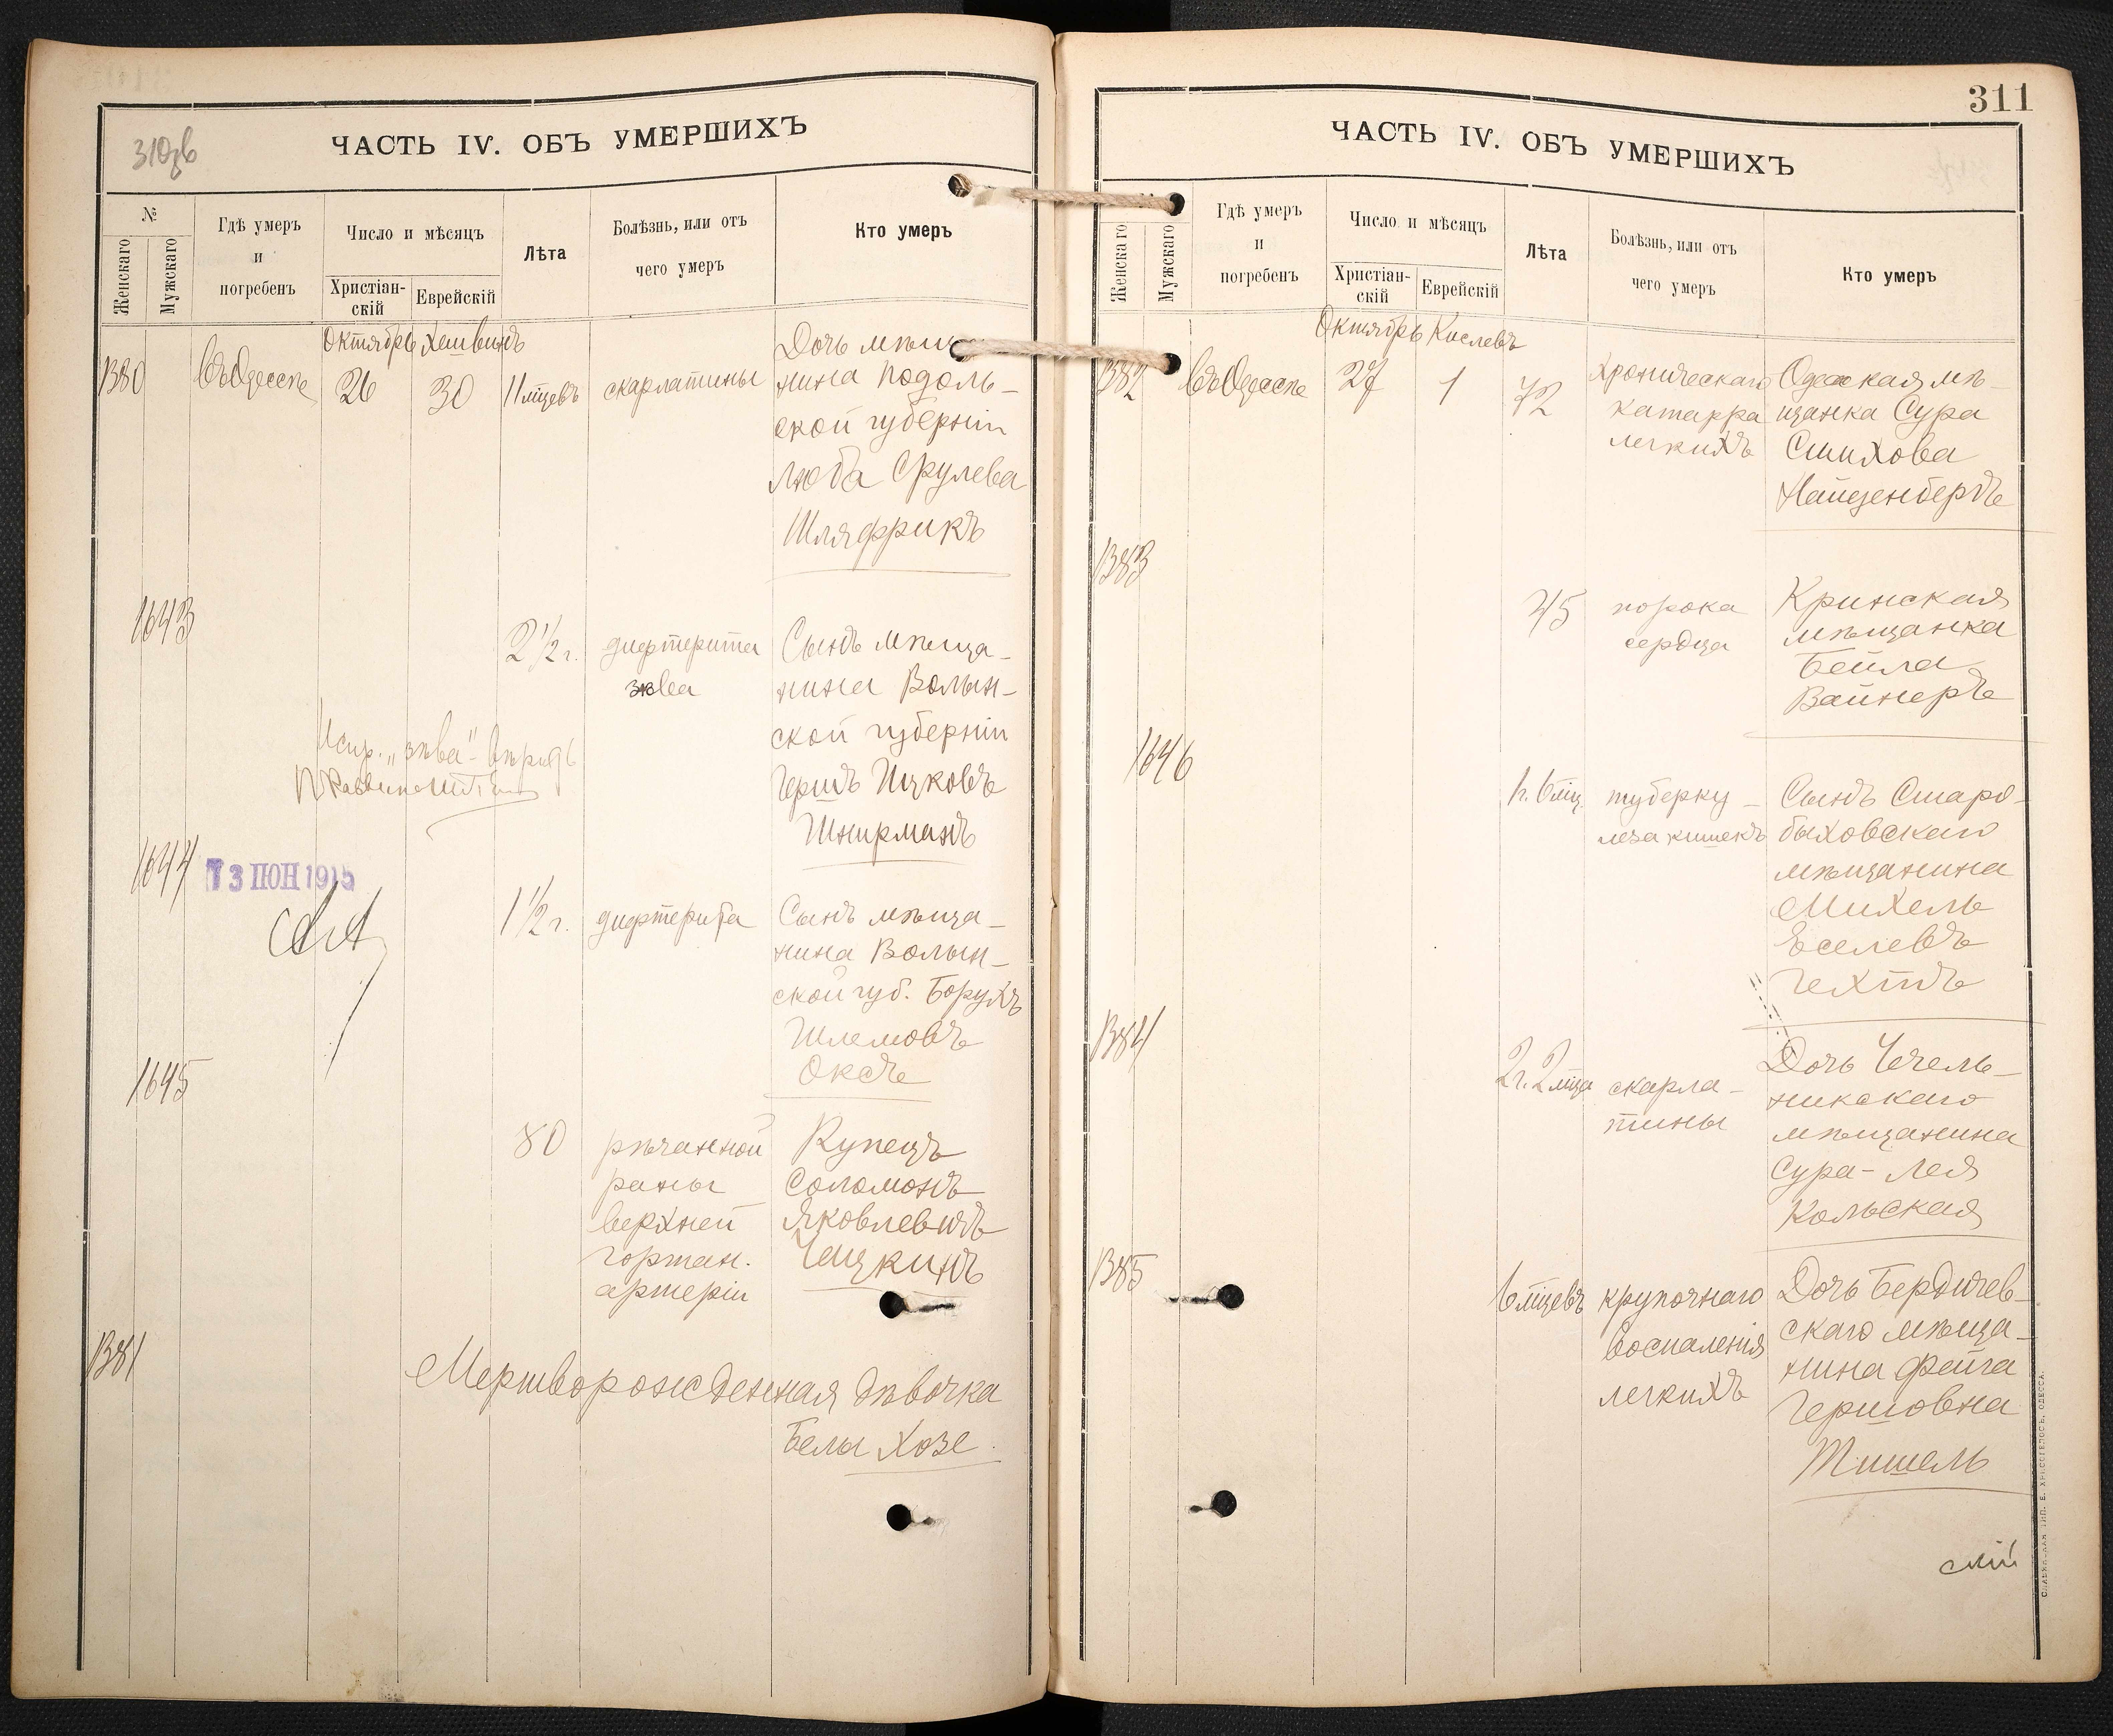 310зв
ЧАСТЬ IV. ОБЪ УМЕРШИХЪ
№
Женскаго
Мужскаго
Гдѣ умеръ
и
погребенъ
Число и мѣсяцъ
Христіан-
скій
Еврейскій
Лѣта
Болѣзнь, или отъ
чего умеръ
Кто умеръ
Октябрь Хешвинъ
1380 въ Одессѣ 26 30 11 мцевъ скарлатины
Дочь мѣща
нина Подоль-
ской губерніи
Люба Срулева
Шляффрикъ
1643
2 1/2 г. дифтерита
зѣва
Сынъ мѣща-
нина Волын-
ской губерніи
Гершъ Ицковъ
Шнирманъ
Испр. „зѣва"- вѣрить
1644
13 ІЮН 1915
1 1/2 г. дифтерита
Сынъ мѣща-
нина Волын-
ской губ. Борухъ
Шлемовъ
Оксъ
1645
80 рѣзанной
раны
верхней
гортан.
артеріи
Купецъ
Соломонъ
Яковлевичъ
Чацкинъ
1381
Мертворожденная дѣвочка
Белы Хозе.
311
ЧАСТЬ IV. ОБЪ УМЕРШИХЪ
Женскаго
Мужскаго
Гдѣ умеръ
и
погребенъ
Число и мѣсяцъ
Христіан-
скій
Еврейскій
Лѣта
Болѣзнь, или отъ
чего умеръ
Кто умеръ
Октябрь Кислевъ
1382 въ Одессѣ 27 1 72
хроническаго
катарра
легкихъ
Одесская мѣ-
щанка Сура
Симхова
Найденбергъ
1383
45 порока
сердца
Кринская
мѣщанка
Бейла
Вайнеръ
1646
1 г. 6 мц туберку-
леза кишекъ
Сынъ Старо-
быховскаго
мѣщанина
Михель
Іоселевъ
Гехтъ
1384
2 г. 2 мца скарла-
тины
Дочь Чечель-
никскаго
мѣщанина
Сура-Лея
Кольская
1385
6 мцевъ крупознаго
воспаленія
легкихъ
Дочь Бердичев-
скаго мѣща-
нина Фейга
Гершовна
Тишель